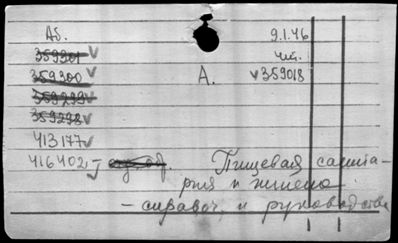 Аб. 9.1.46
359301 Чит.
359300 А. 359018
359299
359298
413177
416402 Пищевая санита-
рия и гигиена
- справоч. и руководства